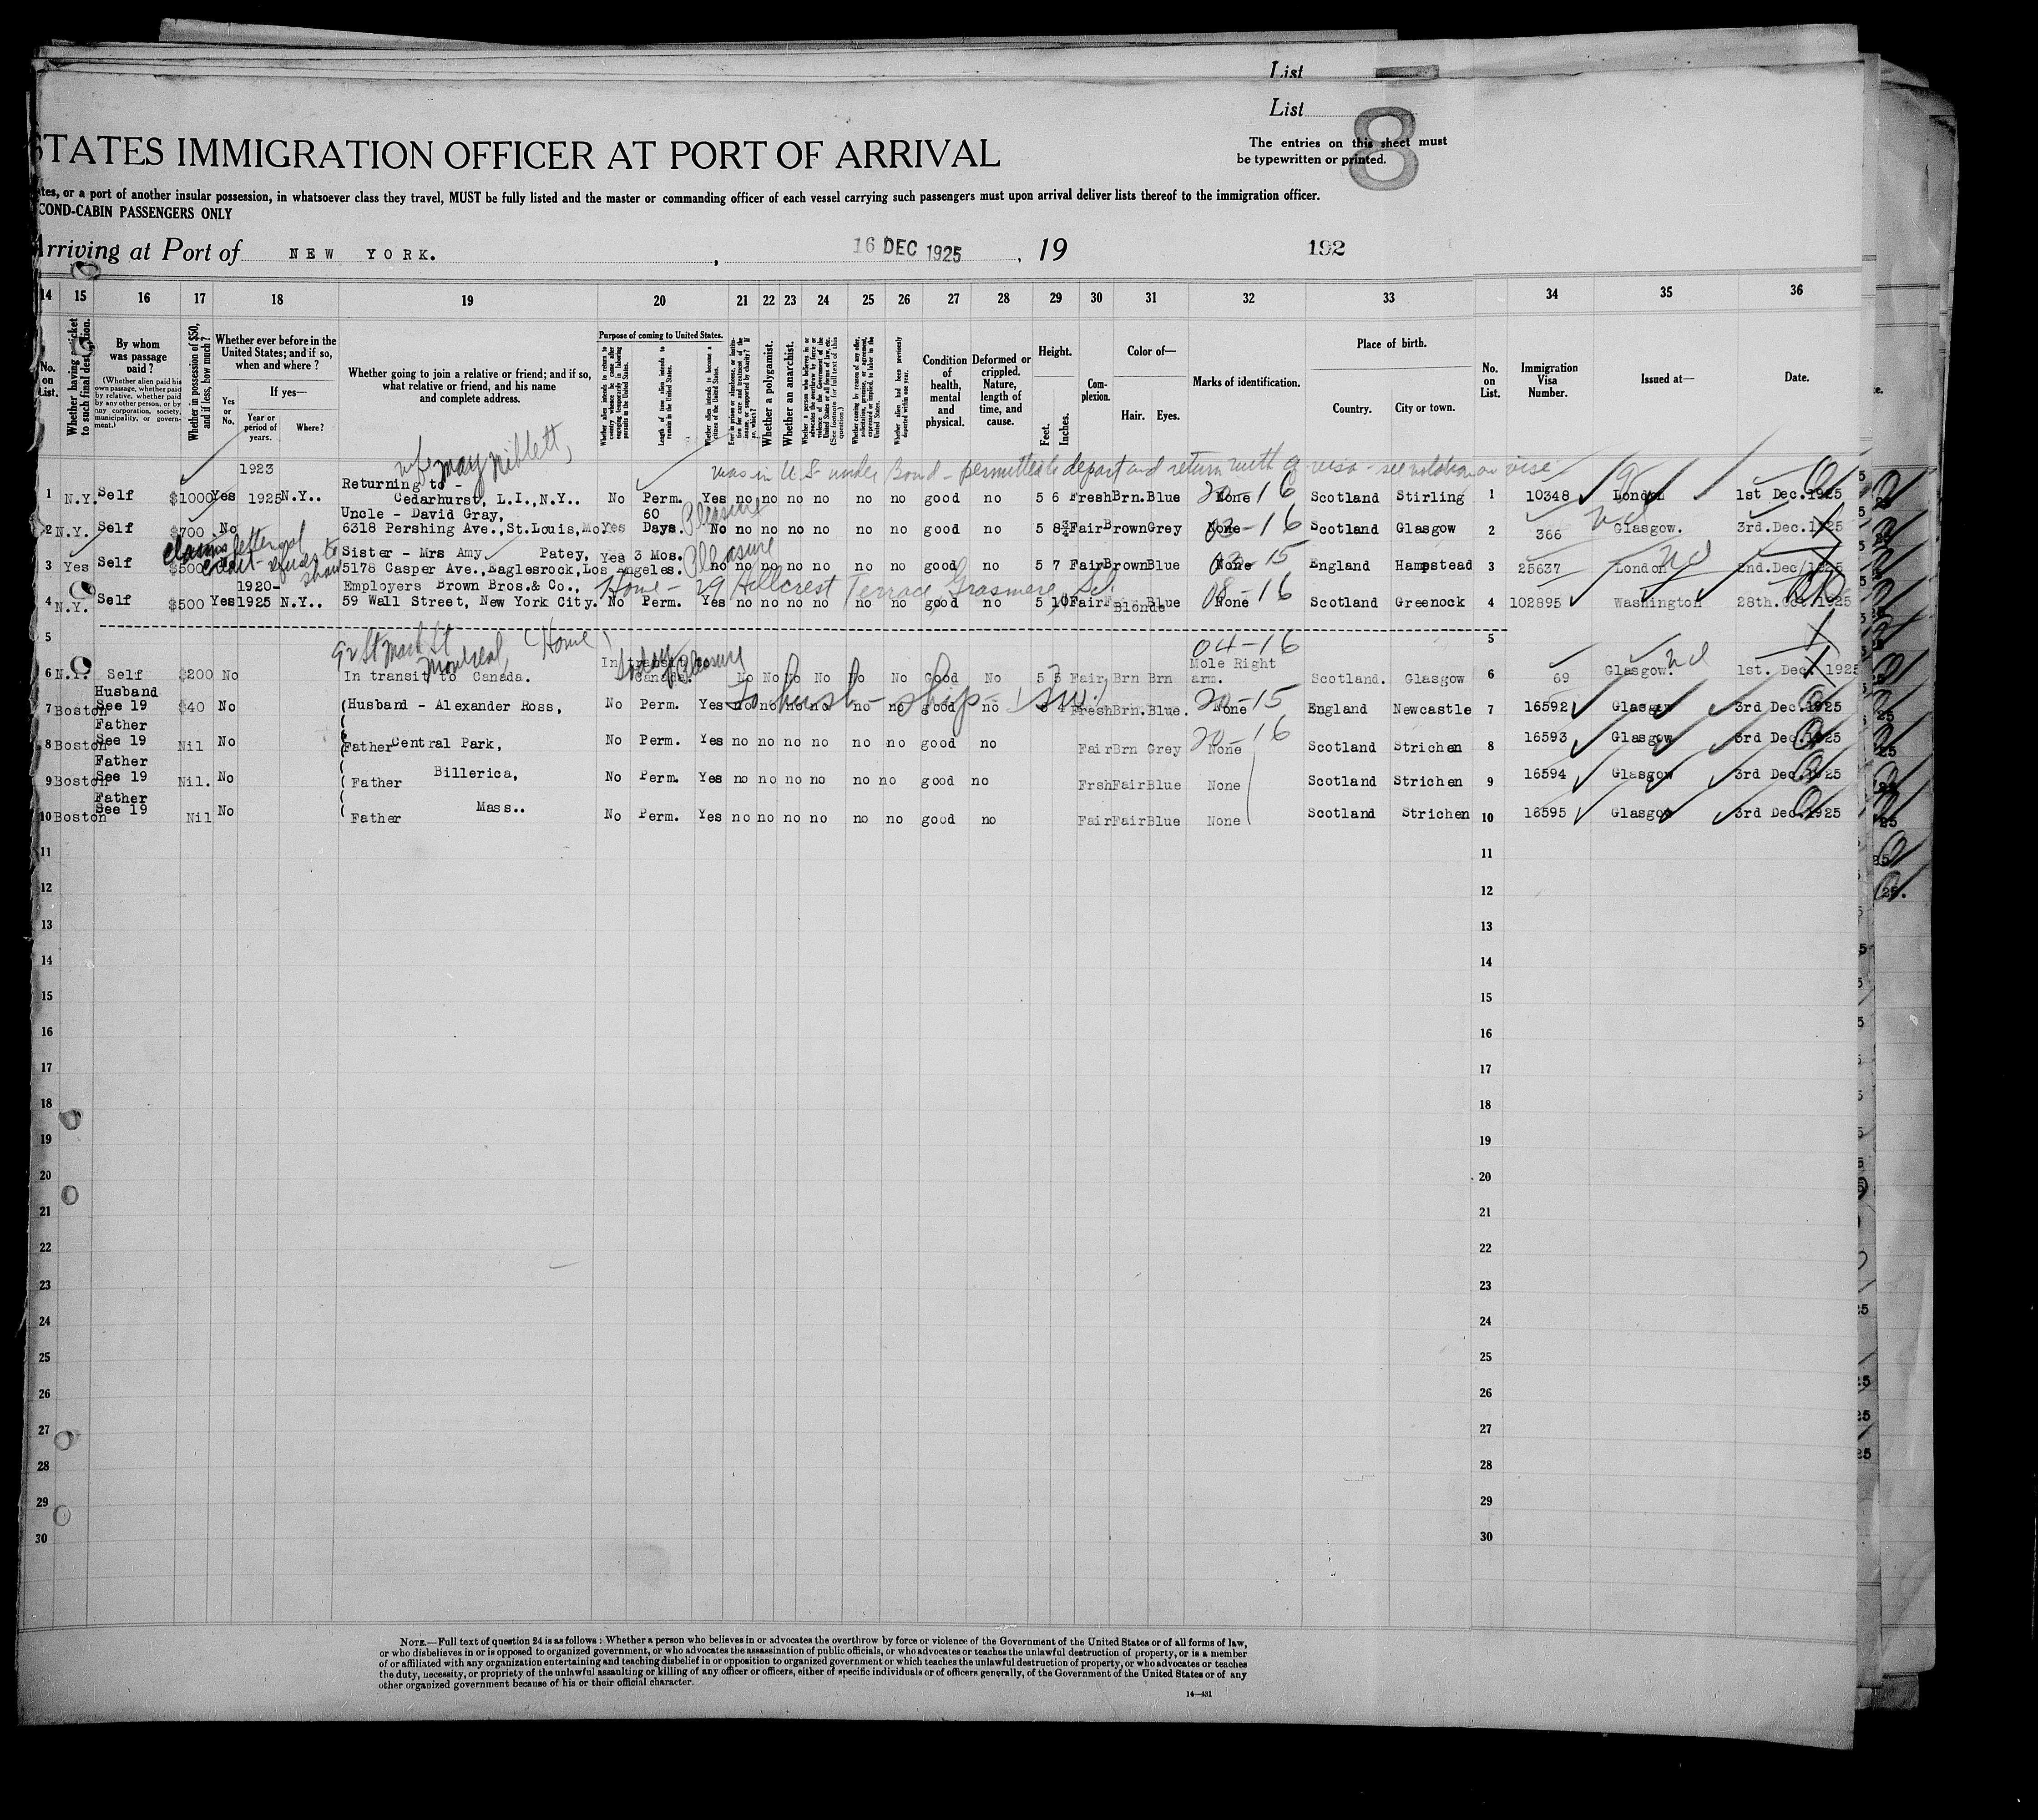 List
List
8
The entries on this sheet must
be typewritten or printed.
STATES IMMIGRATION OFFICER AT PORT OF ARRIVAL
tes, or a port of another insular possession, in whatsoever class they travel, MUST be fully listed and the master or commanding officer of each vessel carrying such passengers must upon arrival deliver lists thereof to the immigration officer.
COND-CABIN PASSENGERS ONLY
Arriving at Port of NEW YORK. , 16 DEC 1925 , 19 192
14 15 16 17 18 19 20 21 22 23 24 25 26 27 28 29 30 31 32 33 34 35 36
No. on List.
Whether having a ticket to such final destination.
By whom was passage paid?
(Whether alien paid his own passage, whether paid by relative, whether paid by any other person, or by any corporation, society, municipality, or government.)
Whether in possession of $50, and if less, how much?
Whether ever before in the United States; and if so, when and where?
Yes or No.
If yes—
Year or period of years.
Where?
Whether going to join a relative or friend; and if so, what relative or friend, and his name and complete address.
Purpose of coming to United States.
Whether alien intends to return to country whence he came after engaging temporarily in laboring pursuits in the United States.
Length of time alien intends to remain in the United States.
Whether alien intends to become a citizen of the United States.
Whether a polygamist.
Whether an anarchist.
Condition of health, mental and physical.
Deformed or crippled. Nature, length of time, and cause.
Height.
Feet. Inches.
Complexion.
Color of—
Hair. Eyes.
Marks of identification.
Place of birth.
Country. City or town.
No. on List.
Immigration Visa Number.
Issued at—
Date.
wife May Niblett,
was in U.S. under Bond - permitted to depart and return with a visa - see notation on visa
1923
Returning to -
1 N.Y. Self $1000 Yes 1925 N.Y.. Cedarhurst, L.I., N.Y.. No Perm. Yes no no no no no no good no 5 6 Fresh Brn. Blue None 20-16 Scotland Stirling 1 10348 London 1st Dec.1925
Uncle - David Gray, 60 Pleasure
2 N.Y. Self $700 No 6318 Pershing Ave., St.Louis, Mo. Yes Days. No no no no no no no good no 5 8¾ Fair Brown Grey None 03-16 Scotland Glasgow 2 366 Glasgow. 3rd.Dec.1925
claims letter of credit - refused to show
Sister - Mrs Amy Patey, Yes 3 Mos. Pleasure
3 Yes Self $500 5178 Casper Ave., Eaglesrock, Los Angeles. no no no no no no no good no 5 7 Fair Brown Blue None 03-15 England Hampstead 3 25637 London 2nd.Dec/1925
1920- Employers Brown Bros.& Co., Home - 29 Hillcrest Terrace Grasmere S.I.
4 N.Y. Self $500 Yes 1925 N.Y.. 59 Wall Street, New York City. No Perm. Yes no no no no no no good no 5 10 Fair Blonde Blue None 08-16 Scotland Greenock 4 102895 Washington 28th.Oct.1925
5 5
92 St Mark St Montreal, (Home)
In transit to Canada. Pleasure 04-16
6 N.Y. Self $200 No In transit to Canada. No No No No No No Good No 5 3 Fair, Brn Brn Mole Right arm. Scotland. Glasgow 6 69 Glasgow. 1st. Dec. 1925
to husb - ship -
7 Boston Husband See 19 $40 No (Husband - Alexander Ross, No Perm. Yes no no no no no no good no 5 4 Fresh Brn. Blue. None 20-15 England Newcastle 7 16592 Glasgow 3rd Dec.1925
8 Boston Father See 19 Nil No (Father Central Park, No Perm. Yes no no no no no no good no Fair Brn Grey None 20-16 Scotland Strichen 8 16593 Glasgow 3rd Dec.1925
9 Boston Father See 19 Nil. No (Father Billerica, No Perm. Yes no no no no no no good no Frsh Fair Blue None Scotland Strichen 9 16594 Glasgow 3rd Dec.1925
10 Boston Father See 19 Nil No (Father Mass.. No Perm. Yes no no no no no no good no Fair Fair Blue None Scotland Strichen 10 16595 Glasgow 3rd Dec.1925
11 11
12 12
13 13
14 14
15 15
16 16
17 17
18 18
19 19
20 20
21 21
22 22
23 23
24 24
25 25
26 26
27 27
28 28
29 29
30 30
NOTE.—Full text of question 24 is as follows: Whether a person who believes in or advocates the overthrow by force or violence of the Government of the United States or of all forms of law,
or who disbelieves in or is opposed to organized government, or who advocates the assassination of public officials, or who advocates or teaches the unlawful destruction of property, or is a member
of or affiliated with any organization entertaining and teaching disbelief in or opposition to organized government or which teaches the unlawful destruction of property, or who advocates or teaches
the duty, necessity, or propriety of the unlawful assaulting or killing of any officer or officers, either of specific individuals or of officers generally, of the Government of the United States or of any
other organized government because of his or their official character.
14—431